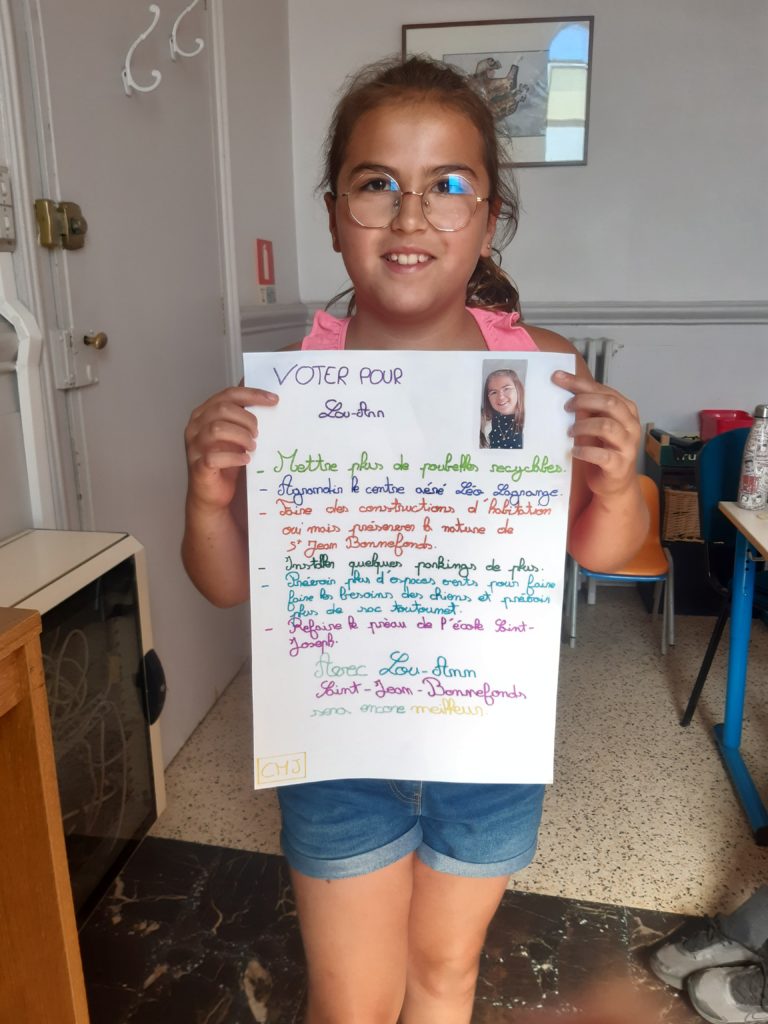 VOTER POUR
Lou-Ann
- Mettre plus de poubelles recyclbles.
- Agrandir le centre aéré Léo Lagrange.
- Faire des constructions d'habitation
oui mais préserver la nature de
St Jean Bonnefonds.
- Installer quelques parkings de plus.
- Prévoir plus d'espaces verts pour faire
faire les besoins des chiens et prévoir
plus de sac toutounet.
- Refaire le préau de l'école Saint-
Joseph.
Avec Lou-Ann
Saint-Jean-Bonnefonds
sera encore meilleur.
CMJ